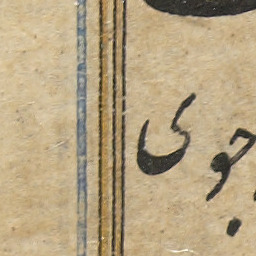 جوی